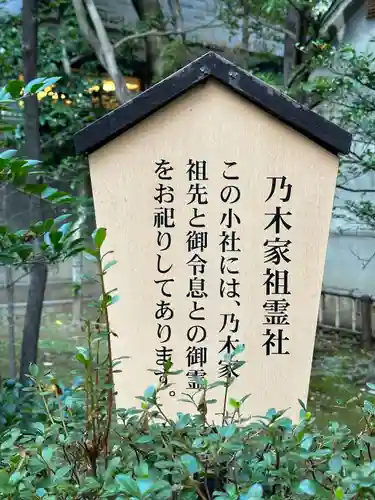 乃木家祖霊社
この小社には、乃木家
祖先と御令息との御霊
をお祀りしてあります。